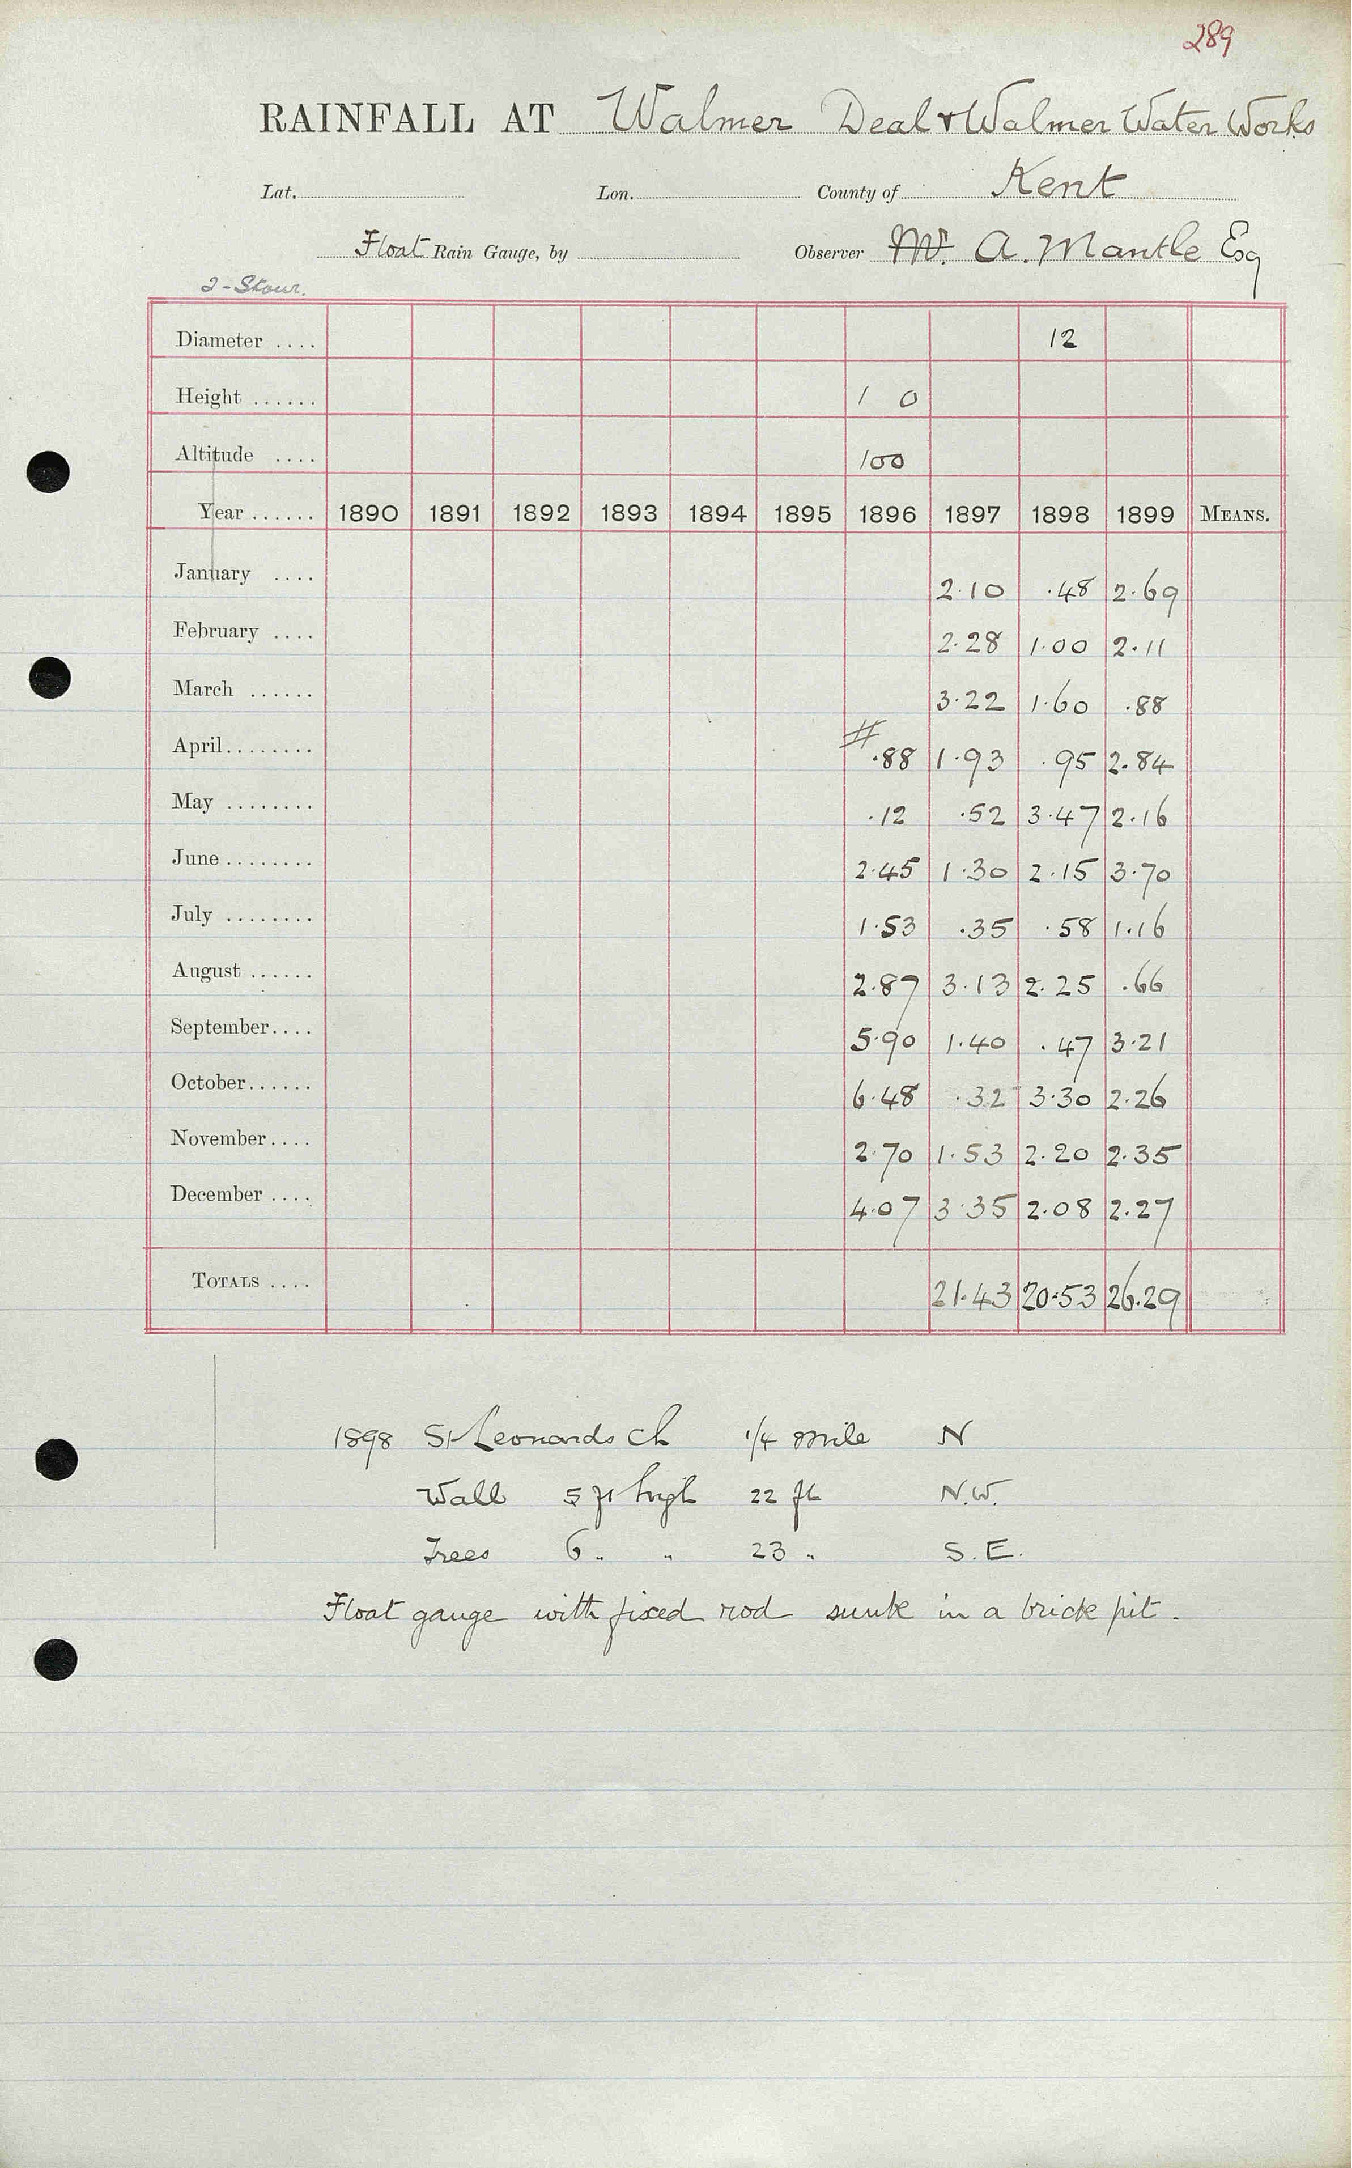 289
RAINFALL AT Walmer Deal & Walmer Water Works
Lat. Lon. County of Kent
Float Rain Gauge, by Observer A. Mantle Esq
2-Stour.
Diameter .... 12
Height ...... 1 0
Altitude .... 100
Year ...... 1890 1891 1892 1893 1894 1895 1896 1897 1898 1899 MEANS.
January .... 2.10 .48 2.69
February .... 2.28 1.00 2.11
March ...... 3.22 1.60 .88
April........ # .88 1.93 .95 2.84
May ........ .12 .52 3.47 2.16
June ........ 2.45 1.30 2.15 3.70
July ........ 1.53 .35 .58 1.16
August ...... 2.87 3.13 2.25 .66
September.... 5.90 1.40 .47 3.21
October...... 6.48 .32 3.30 2.26
November.... 2.70 1.53 2.20 2.35
December .... 4.07 3.35 2.08 2.27
TOTALS .... 21.43 20.53 26.29
1898 St Leonards Ch 1/4 mile N
Wall 5 ft high 22 ft N.W.
Trees 6 " " 23 " S.E.
Float gauge with fixed rod sunk in a brick pit.